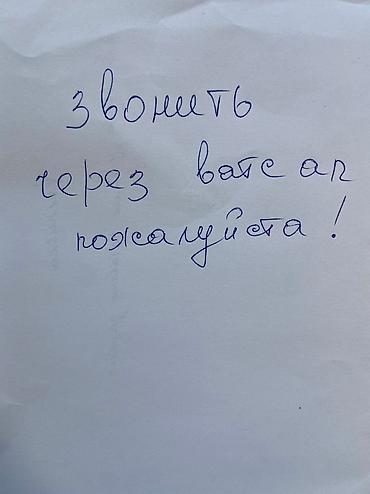 звонить
через ватсап
пожалуйста!